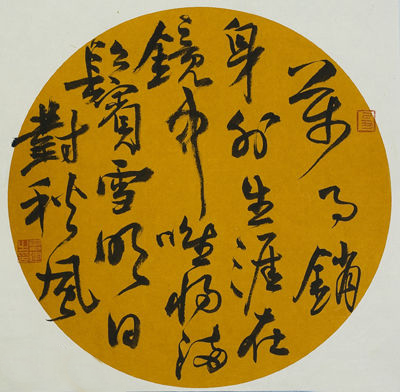 萬事銷
身外生涯在
鏡中唯將滿
鬢雪明日
對秋風